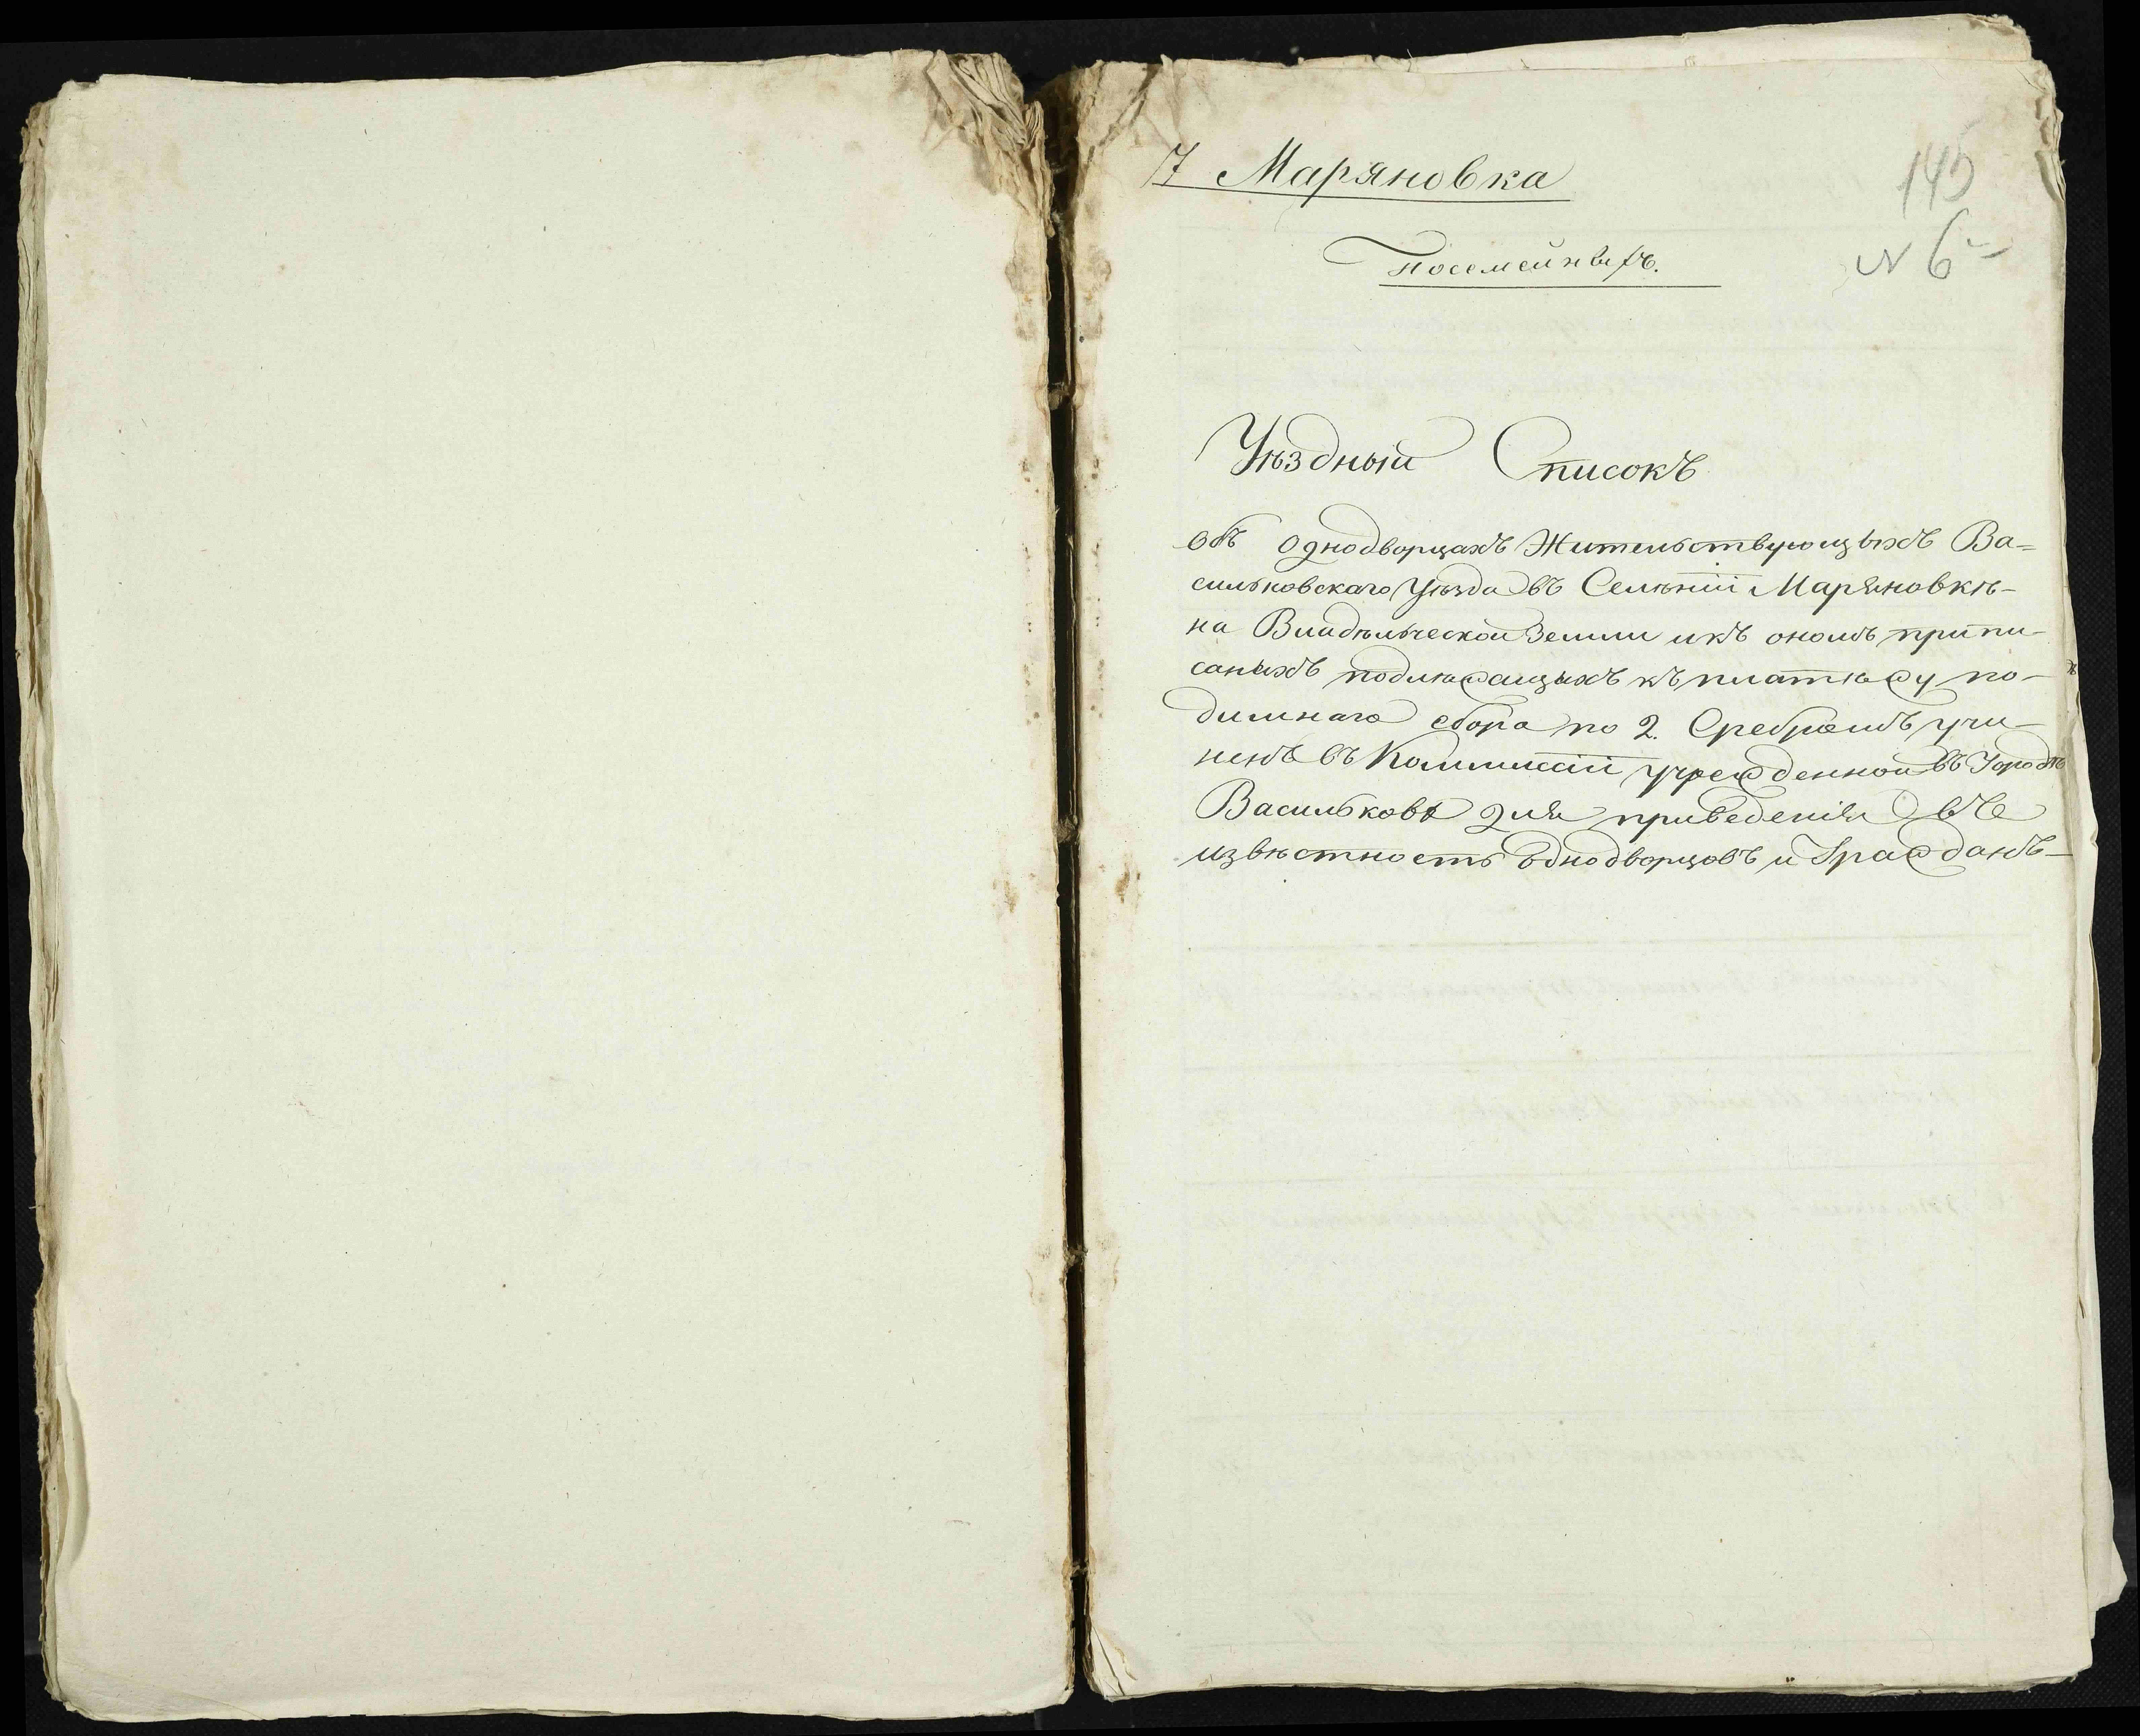 7 Маряновка
145
№ 6
Посемейныхъ.
Уѣздный Списокъ
объ однодворцахъ Жительствующыхъ Ва=
сильковскаго Уѣзда въ Селѣніи Маряновкѣ-
на Владѣльческой Земли икъ ономъ припи-
саныхъ подлѣжащихъ къ платѣжу по-
димнаго сбора по 2. Сребромъ учи-
ненъ въ Коммиссіи учрежденной въ Городѣ
Василькове для приведенія въ
извѣстность Однодворцовъ и Гражданъ-